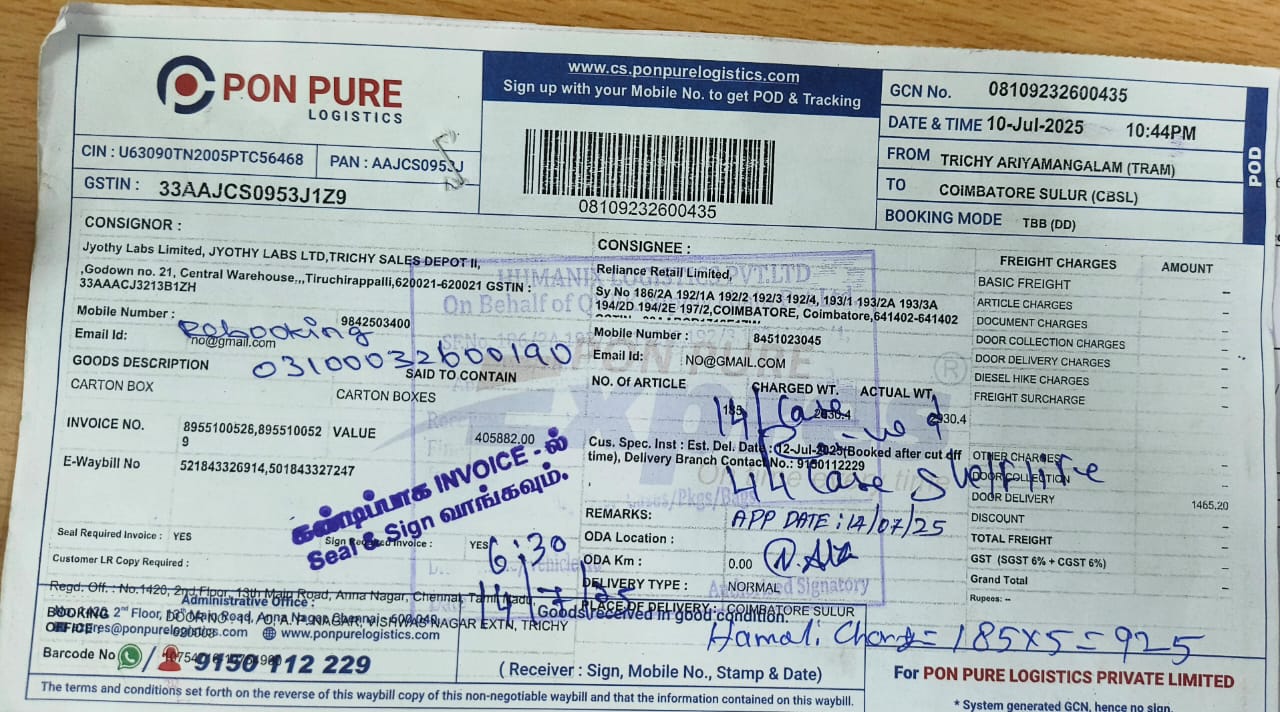 PON PURE
LOGISTICS
www.cs.ponpurelogistics.com
Sign up with your Mobile No. to get POD & Tracking
GCN No. 08109232600435
DATE & TIME 10-Jul-2025 10:44PM
FROM TRICHY ARIYAMANGALAM (TRAM)
TO COIMBATORE SULUR (CBSL)
BOOKING MODE TBB (DD)
POD
CIN : U63090TN2005PTC56468
PAN : AAJCS0953J
GSTIN : 33AAJCS0953J1Z9
08109232600435
CONSIGNOR :
Jyothy Labs Limited, JYOTHY LABS LTD,TRICHY SALES DEPOT II,
,Godown no. 21, Central Warehouse,,,Tiruchirappalli,620021-620021 GSTIN :
33AAACJ3213B1ZH
Mobile Number : 9842503400
Email Id: no@gmail.com
Rebooking
03100032600190
CONSIGNEE :
Reliance Retail Limited,
Sy No 186/2A 192/1A 192/2 192/3 192/4, 193/1 193/2A 193/3A
194/2D 194/2E 197/2,COIMBATORE, Coimbatore,641402-641402
Mobile Number : 8451023045
Email Id: NO@GMAIL.COM
HUMANIX LOGISTICS PVT.LTD
On Behalf of
PON PURE
Express
®
FREIGHT CHARGES AMOUNT
BASIC FREIGHT –
ARTICLE CHARGES –
DOCUMENT CHARGES –
DOOR COLLECTION CHARGES –
DOOR DELIVERY CHARGES –
DIESEL HIKE CHARGES –
FREIGHT SURCHARGE –
OTHER CHARGES –
DOOR COLLECTION –
DOOR DELIVERY 1465.20
DISCOUNT –
TOTAL FREIGHT –
GST (SGST 6% + CGST 6%) –
Grand Total –
Rupees: --
GOODS DESCRIPTION SAID TO CONTAIN
CARTON BOX CARTON BOXES
NO. OF ARTICLE CHARGED WT. ACTUAL WT.
185 2930.4 2930.4
141 Case
INVOICE NO. 8955100526,895510052
9
VALUE 405882.00
E-Waybill No 521843326914,501843327247
Cus. Spec. Inst : Est. Del. Date : 12-Jul-2025(Booked after cut off
time), Delivery Branch Contact No.: 9150112229
44 Case Shelf life
கண்டிப்பாக INVOICE - ல்
Seal & Sign வாங்கவும்.
REMARKS: APP DATE : 14/07/25
ODA Location :
ODA Km : 0.00
DELIVERY TYPE : NORMAL
PLACE OF DELIVERY : COIMBATORE SULUR
Authorized Signatory
Seal Required Invoice : YES
Sign Required Invoice : YES
6:30
14/7/25
Customer LR Copy Required :
Regd. Off. : No.1420, 2nd Floor, 13th Main Road, Anna Nagar, Chennai, Tamil Nadu
Administrative Office :
No. 1420, 2nd Floor, 13th Main Road, Anna Nagar, Chennai - 600 040.
BOOKING OFFICE
NAGAR EXTN, TRICHY
@ponpurelogistics.com www.ponpurelogistics.com
Barcode No
9150 112 229
Goods received in good condition.
( Receiver : Sign, Mobile No., Stamp & Date)
Hamali Charge = 185x5 = 925
For PON PURE LOGISTICS PRIVATE LIMITED
* System generated GCN, hence no sign.
The terms and conditions set forth on the reverse of this waybill copy of this non-negotiable waybill and that the information contained on this waybill.